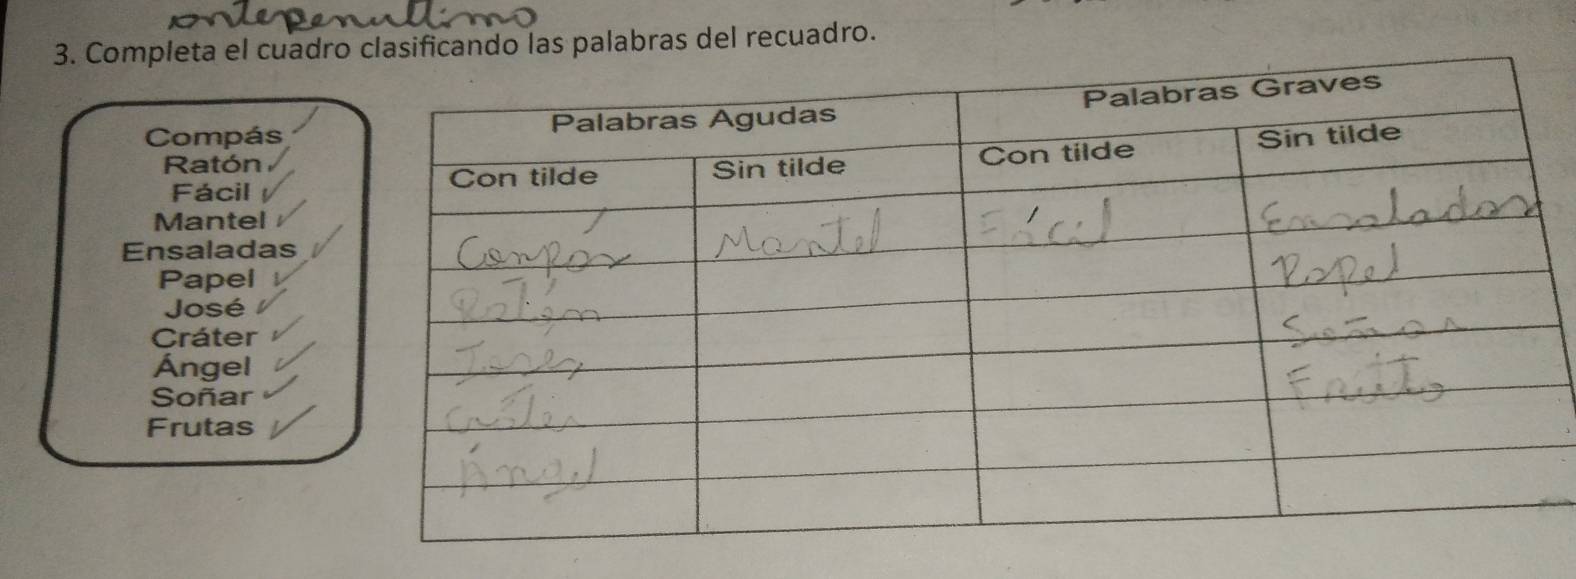 antepenultimo
3. Completa el cuadro clasificando las palabras del recuadro.
Compás
Ratón
Fácil
Mantel
Ensaladas
Papel
José
Cráter
Ángel
Soñar
Frutas
Palabras Agudas Palabras Graves
Con tilde Sin tilde Con tilde Sin tilde
Compás Mantel Fácil Ensaladas
Ratón Papel
José Soñar
Cráter Fruto
Ángel